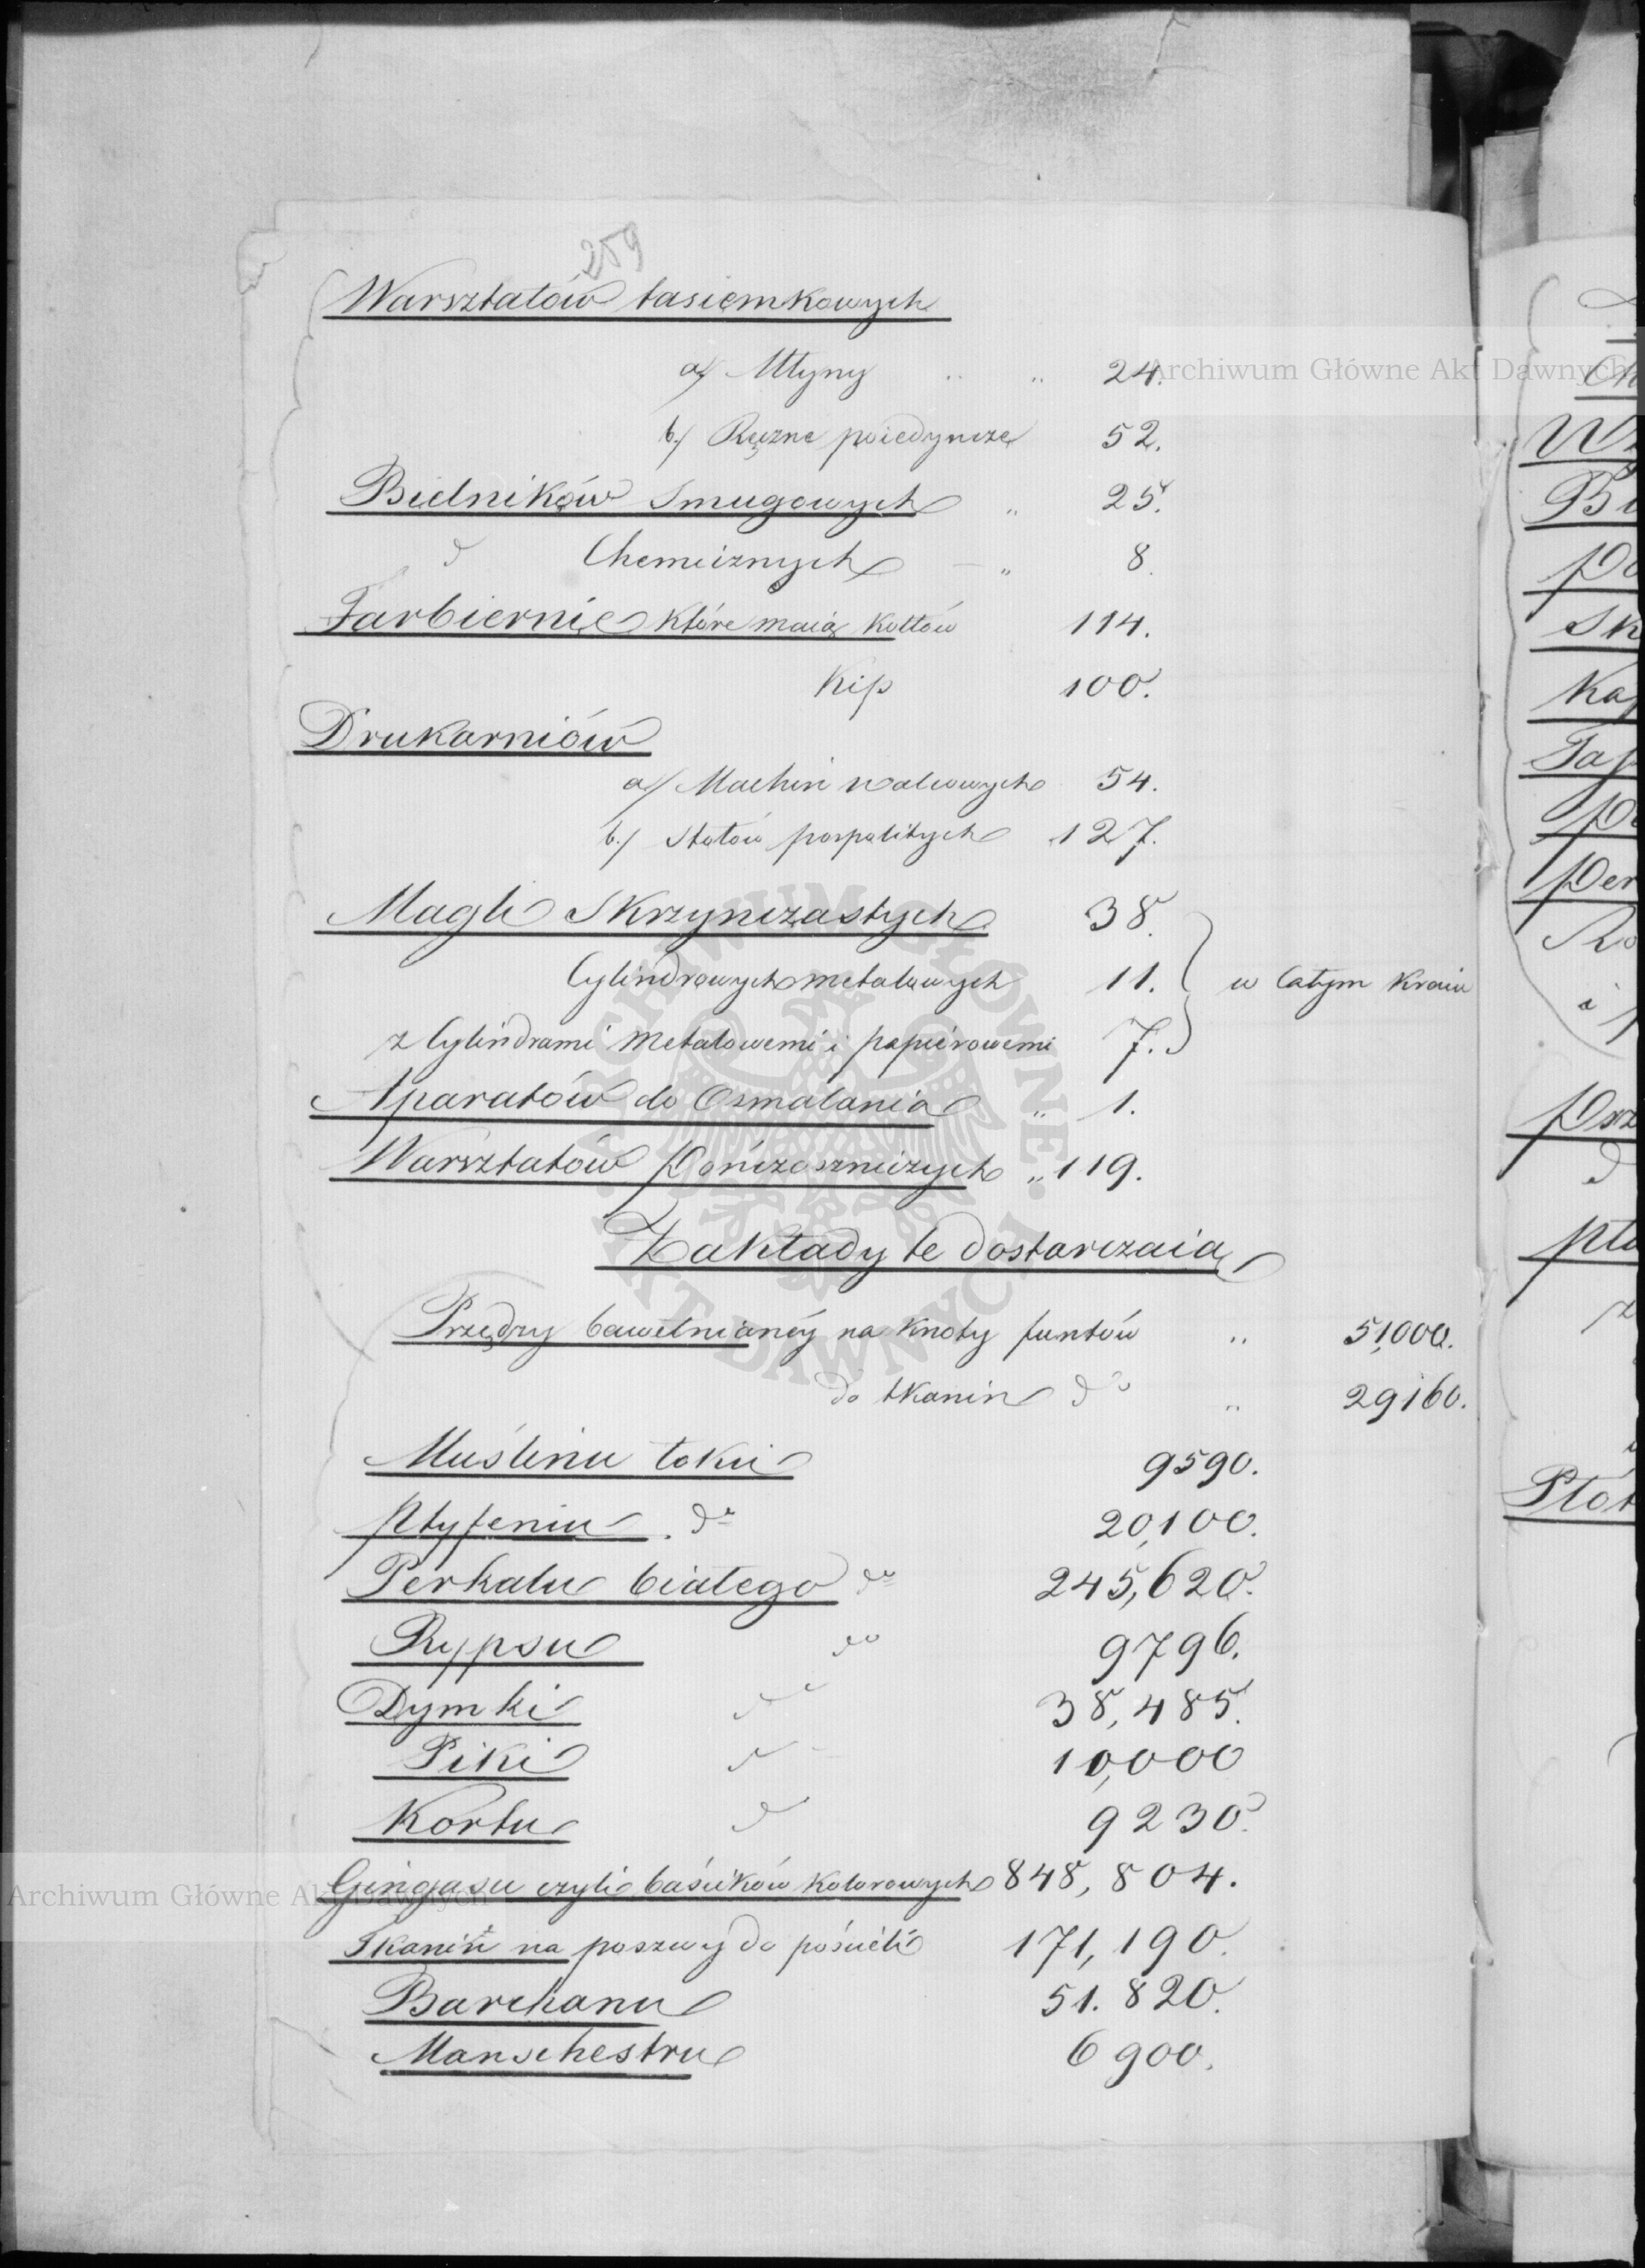 259
Warsztatów tasiemkowych
a/ Młyny " " 24.
b./ Ręzne poiedyncze 52.
Bielników Smugowych " 25.
d Chemicznych — " 8.
Farbiernie które maią kotłów 114.
Kip 100.
Drukarniów
a/ Machin walcowych 54.
b./ Stołów pospolitych 127.
Magli Skrzynczastych 38.
Cylindrowych metalowych 11. w Całym Kraiu
z Cylindrami metalowemi i papierowemi 7.
Aparatów do Osmalania " 1.
Warsztatów Pończoszniczych " 119.
Zakłady te dostarczaią
Przędzy bawełnianéy na Knoty funtów " 51,000.
do tkanin do " 29160.
Muślinu łokci 9590.
do 20,100.
Perkalu białego do 245,620.
Rypsu do 9796.
Dymki do 38,485.
Piki d 10,000
Kortu d 9230.
Gingasu czyli kolorowych 848,804.
Tkanin na poszwy do pościeli 171,190.
Barchanu 51.820.
Manschestru 6900.
Archiwum Główne Akt Dawnych
Archiwum Główne Akt Dawnych
ARCHIWUM GŁÓWNE AKT DAWNYCH